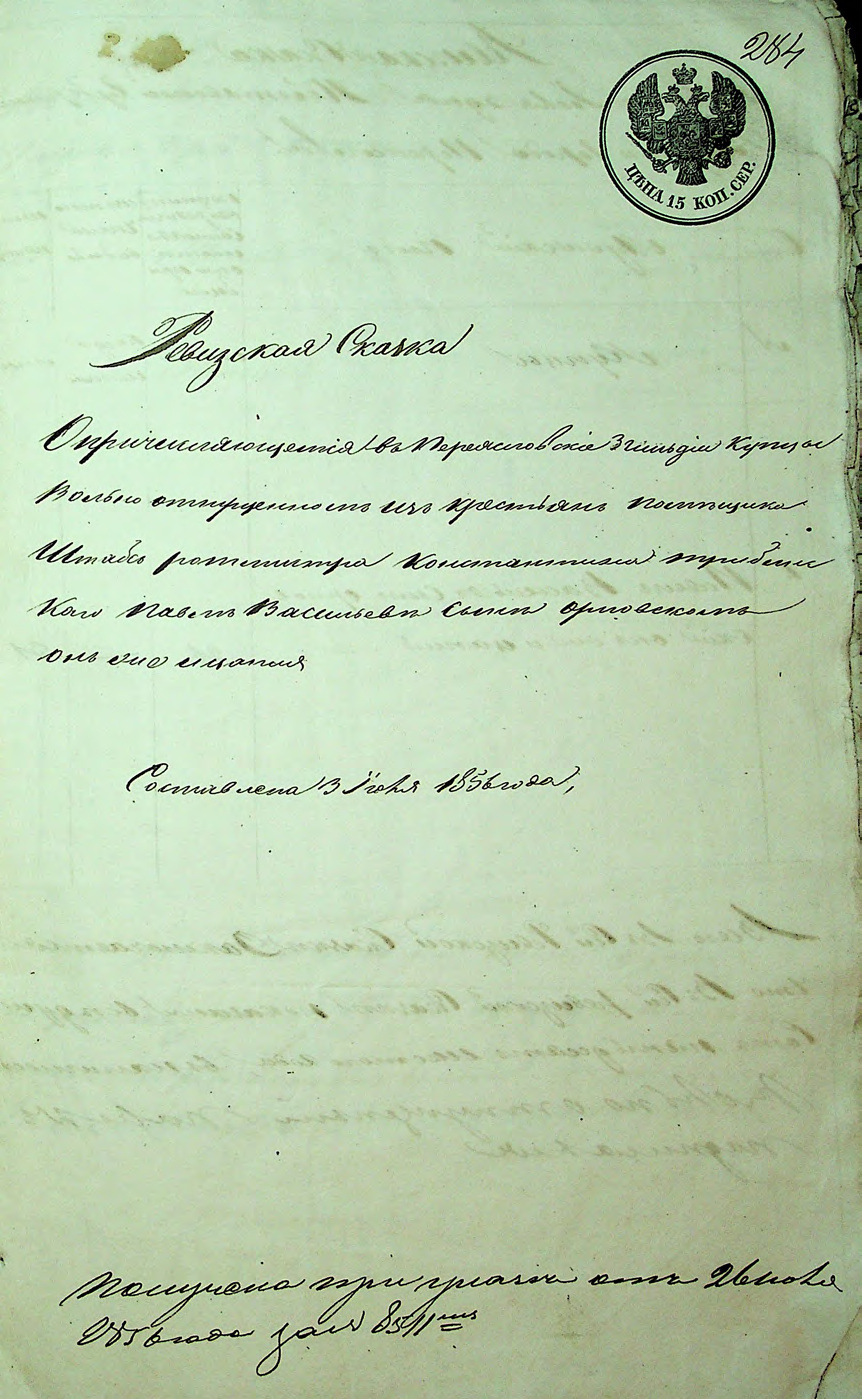 284
ЦѢНА 15 КОП. СЕР.
Ревизская Скаска
О причисляющемся въ Переясловскіе 3 гильдіи Купцы
Вольно отпущенномъ изъ крестьянъ помѣщика
Штабъ ротмистра Константина
Кого Павлѣ Васильевѣ сынѣ Орловскомъ
Составлена 3 Іюня 1856 года,
Получена при указѣ отъ 26 июня
1856 года за № 8511